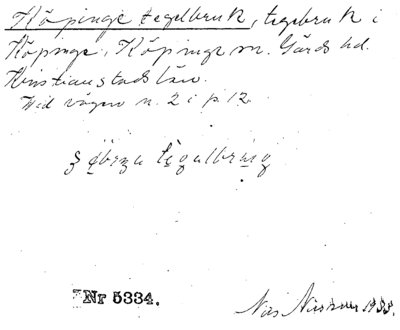 Köpinge tegelbruk, tegebruk i
Köpinge, Köpinge sn. Gärds hd.
Kristianstads län.
Vid vägen n. 2 i p. 12.
Nr 5334.
Nils 1933.